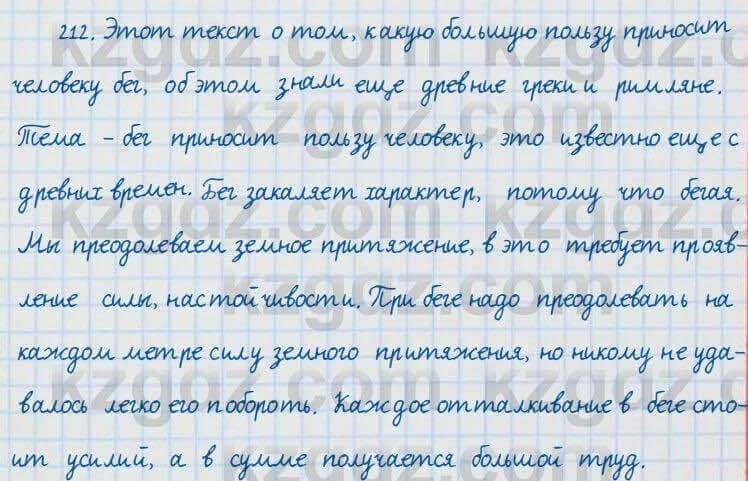 212. Этот текст о том, какую большую пользу приносит
человеку бег, об этом знали еще древние греки и римляне.
Тема - бег приносит пользу человеку, это известно еще с
древних времен. Бег закаляет характер, потому что бегая.
Мы преодолеваем земное притяжение, в это требует прояв-
ление силы, настойчивости. При беге надо преодолевать на
каждом метре силу земного притяжения, но никому не уда-
валось легко его побороть. Каждое отталкивание в беге сто-
ит усилий, а в сумме получается большой труд.
kzgdz.com